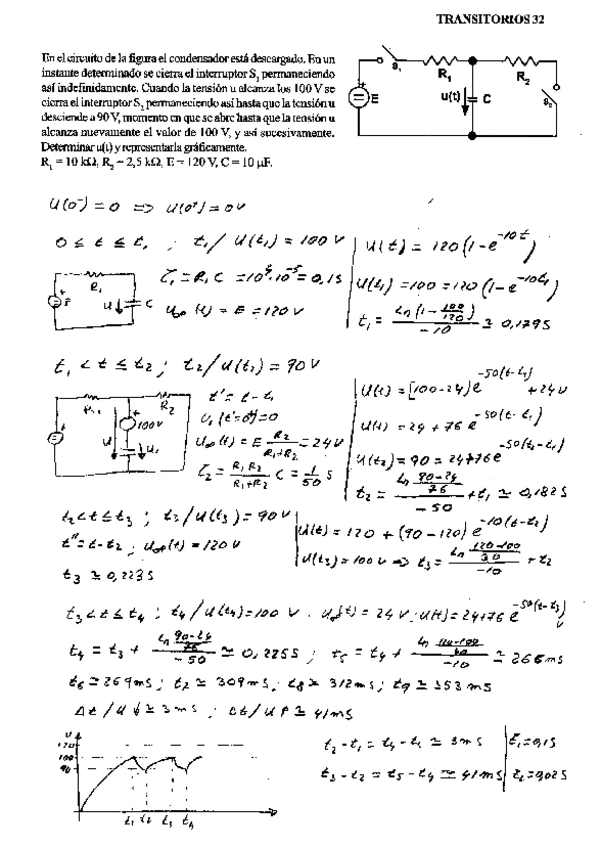 TRANSITORIOS 32
En el circuito de la figura el condensador está descargado. En un
instante determinado se cierra el interruptor S1 permaneciendo
así indefinidamente. Cuando la tensión u alcanza los 100 V se
cierra el interruptor S2 permaneciendo así hasta que la tensión u
desciende a 90 V, momento en que se abre hasta que la tensión u
alcanza nuevamente el valor de 100 V, y así sucesivamente.
Determinar u(t) y representarla gráficamente.
R1 = 10 kΩ, R2 = 2,5 kΩ, E = 120 V, C = 10 μF.
S1 R1 R2 S2
+ E u(t) C
U(0⁻) = 0 ⇒ U(0⁺) = 0V
0 ≤ t ≤ t1 ; t1 / U(t1) = 100 V
U(t) = 120 (1 - e^-10t)
R1 E U C
τ1 = R1 C = 10^4·10^-5 = 0,1 s
U∞(t) = E = 120 V
U(t1) = 100 = 120 (1 - e^-10t1)
t1 = Ln(1 - 100/120) / -10 ≃ 0,179 s
t1 < t ≤ t2 ; t2 / U(t2) = 90 V
R1 R2 100V U U1
t' = t - t1
U1(t'=0⁺) = 0
U∞(t) = E R2/(R1+R2) = 24 V
τ2 = R1 R2/(R1+R2) C = 1/50 s
U(t) = [100-24] e^-50(t-t1) + 24 V
U(t) = 24 + 76 e^-50(t-t1)
U(t2) = 90 = 24+76 e^-50(t2-t1)
t2 = Ln (90-24)/76 / -50 + t1 ≃ 0,182 s
t2 < t ≤ t3 ; t3 / U(t3) = 90 V
t'' = t - t2 ; U∞(t) = 120 V
t3 ≃ 0,223 s
U(t) = 120 + (90 - 120) e^-10(t-t2)
U(t3) = 100 V ⇒ t3 = Ln (120-100)/30 / -10 + t2
t3 < t ≤ t4 ; t4 / U(t4) = 100 V . U∞(t) = 24 V ; U(t) = 24+76 e^-50(t-t3) V
t4 = t3 + Ln (90-24)/76 / -50 ≃ 0,225 s ; t5 = t4 + / -10 ≃ 266 ms
t6 ≃ 269 ms ; t7 ≃ 309 ms ; t8 ≃ 312 ms ; t9 ≃ 353 ms
Δt / U ↓ ≃ 3 ms ; Δt / U ↑ ≃ 41 ms
U
120
100
90
t1 t2 t3 t4
t2 - t1 = t4 - t3 ≃ 3 ms
τ1 = 0,1 s
t3 - t2 = t5 - t4 ≃ 41 ms
τ2 = 0,02 s